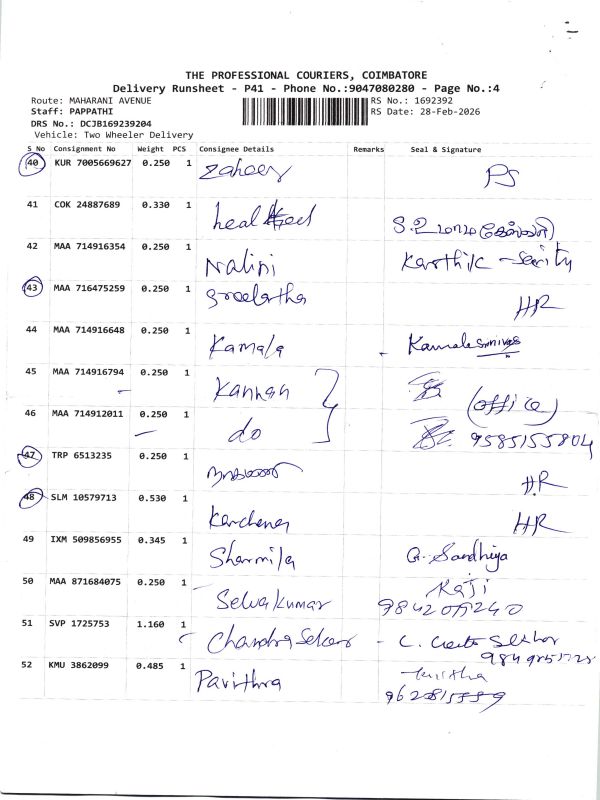 THE PROFESSIONAL COURIERS, COIMBATORE
Delivery Runsheet - P41 - Phone No.:9047080280 - Page No.:4
Route: MAHARANI AVENUE RS No.: 1692392
Staff: PAPPATHI RS Date: 28-Feb-2026
DRS No.: DCJB169239204
Vehicle: Two Wheeler Delivery
S No Consignment No Weight PCS Consignee Details Remarks Seal & Signature
40 KUR 7005669627 0.250 1 Zaheer PS
41 COK 24887689 0.330 1
42 MAA 714916354 0.250 1 Nalini Karthik
43 MAA 716475259 0.250 1 Sreelatha HR
44 MAA 714916648 0.250 1 Kamala
45 MAA 714916794 0.250 1 Kannan (office)
46 MAA 714912011 0.250 1 do 9585155804
47 TRP 6513235 0.250 1 HR
48 SLM 10579713 0.530 1 HR
49 IXM 509856955 0.345 1 Sharmila G. Sandhiya
50 MAA 871684075 0.250 1 Selvakumar Raji
51 SVP 1725753 1.160 1 Chandra Sekar
52 KMU 3862099 0.485 1 Pavithra